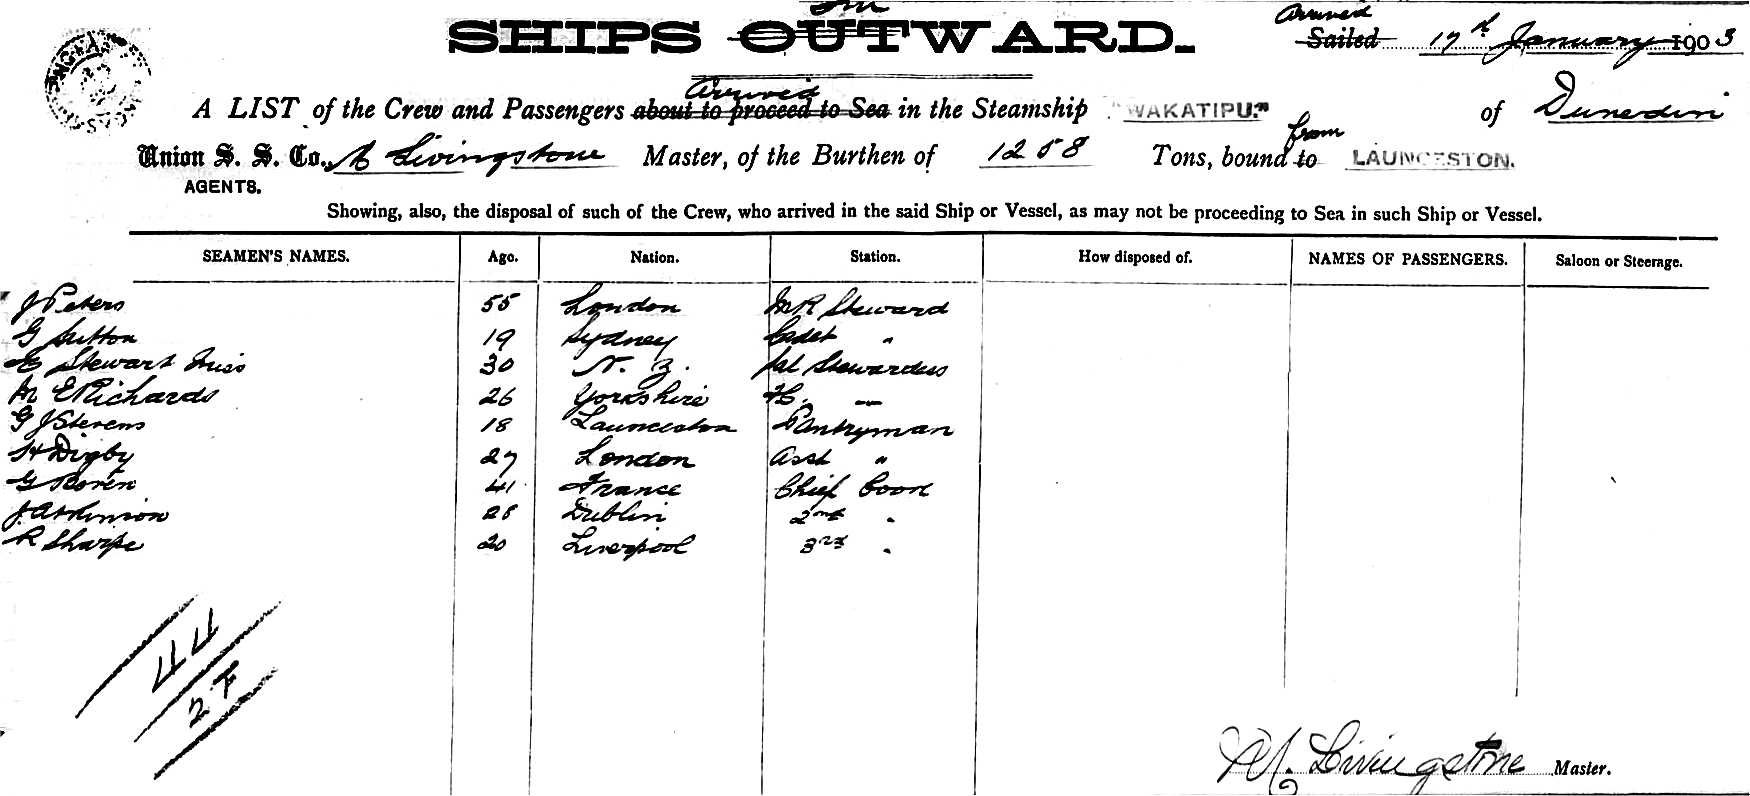 In
SHIPS OUTWARD.
Arrived
Sailed 17th January 1903
Arrived
A LIST of the Crew and Passengers about to proceed to Sea in the Steamship "WAKATIPU." of Dunedin
from
Union S. S. Co., A Livingstone Master, of the Burthen of 1258 Tons, bound to LAUNCESTON.
AGENTS.
Showing, also, the disposal of such of the Crew, who arrived in the said Ship or Vessel, as may not be proceeding to Sea in such Ship or Vessel.
SEAMEN'S NAMES. Age. Nation. Station. How disposed of. NAMES OF PASSENGERS. Saloon or Steerage.
J Peters 55 London M R Steward
G Sutton 19 Sydney Cadet "
E Stewart Miss 30 N. Z. Sal Stewardess
M E Richards 26 Yorkshire F.C. "
G J Stevens 18 Launceston Pantryman
H Digby 27 London Asst "
G 41 France Chief Cook
J. Atkinson 28 Dublin 2nd "
R Sharpe 20 Liverpool 3rd "
44
27
M. Livingstone Master.